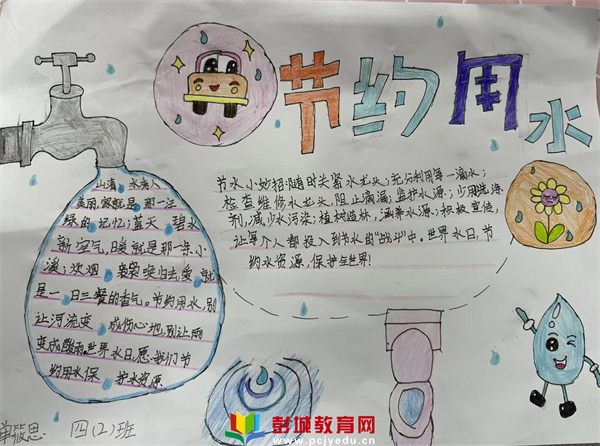 节约用水
山清，水秀人
美丽，家就是那一汪
绿的记忆；蓝天，碧水
新空气，暖就是那一条小
溪；炊烟，袅袅唤归去，爱，就
是一日三餐的香气。节约用水，别
让河流变成伤心地，别让雨
变成酸雨。世界水日，愿我们节
约用水保护水资源
节水小妙招：随时关紧水龙头；充分利用每一滴水；
检查维修水龙头，阻止滴漏；监护水源；少用洗涤
剂，减少水污染；植树造林，涵养水源；积极宣传，
让每个人都投入到节水的“战斗”中。世界水日，节
约水资源，保护全世界！
四（2）班
彭城教育网
www.pcjyedu.cn